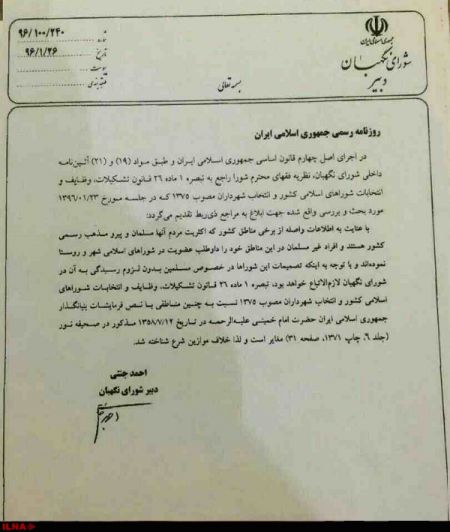 جمهوری اسلامی ایران
شورای نگهبان
دبیر
شماره ۹۶/۱۰۰/۲۴۰
تاریخ ۹۶/۱/۲۶
پیوست
طبقه‌بندی
بسمه تعالی
روزنامه رسمی جمهوری اسلامی ایران
در اجرای اصل چهارم قانون اساسی جمهوری اسلامی ایران و طبق مواد (۱۹) و (۲۱) آئین‌نامه
داخلی شورای نگهبان، نظریه فقهای محترم شورا راجع به تبصره ۱ ماده ۲۶ قانون تشکیلات، وظایف و
انتخابات شوراهای اسلامی کشور و انتخاب شهرداران مصوب ۱۳۷۵ که در جلسه مورخ ۱۳۹۶/۰۱/۲۳
مورد بحث و بررسی واقع شده جهت ابلاغ به مراجع ذی‌ربط تقدیم می‌گردد:
با عنایت به اطلاعات واصله از برخی مناطق کشور که اکثریت مردم آنها مسلمان و پیرو مذهب رسمی
کشور هستند و افراد غیر مسلمان در این مناطق خود را داوطلب عضویت در شوراهای اسلامی شهر و روستا
نموده‌اند و با توجه به اینکه تصمیمات این شوراها در خصوص مسلمین بدون لزوم رسیدگی به آن در
شورای نگهبان لازم‌الاتباع خواهد بود، تبصره ۱ ماده ۲۶ قانون تشکیلات، وظایف و انتخابات شوراهای
اسلامی کشور و انتخاب شهرداران مصوب ۱۳۷۵ نسبت به چنین مناطقی با نص فرمایشات بنیانگذار
جمهوری اسلامی ایران حضرت امام خمینی علیه‌الرحمه در تاریخ ۱۳۵۸/۷/۱۲ مذکور در صحیفه نور
(جلد ۶، چاپ ۱۳۷۱، صفحه ۳۱) مغایر است و لذا خلاف موازین شرع شناخته شد.
احمد جنتی
دبیر شورای نگهبان
ILNA